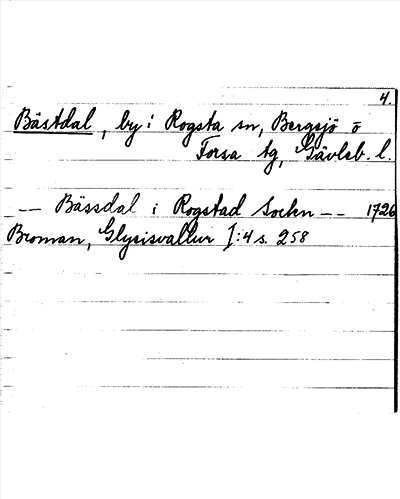 4.
Bästdal, by i Rogsta sn, Bergsjö o
Forsa tg, Gävleb. l.
-- Bässdal i Rogstad Sockn -- 1726
Broman, Glysisvallur I:4 s. 258